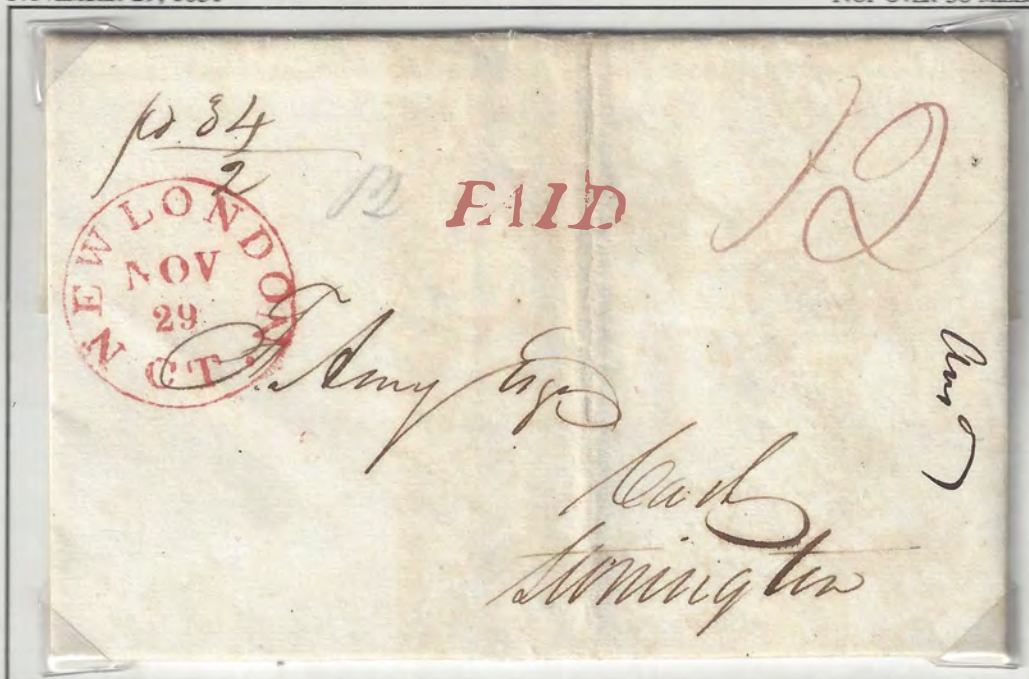 po. 84
2
12
PAID
12
NEW LONDON CT.
NOV
29
F. Amy Esqr
Cash
Stonington